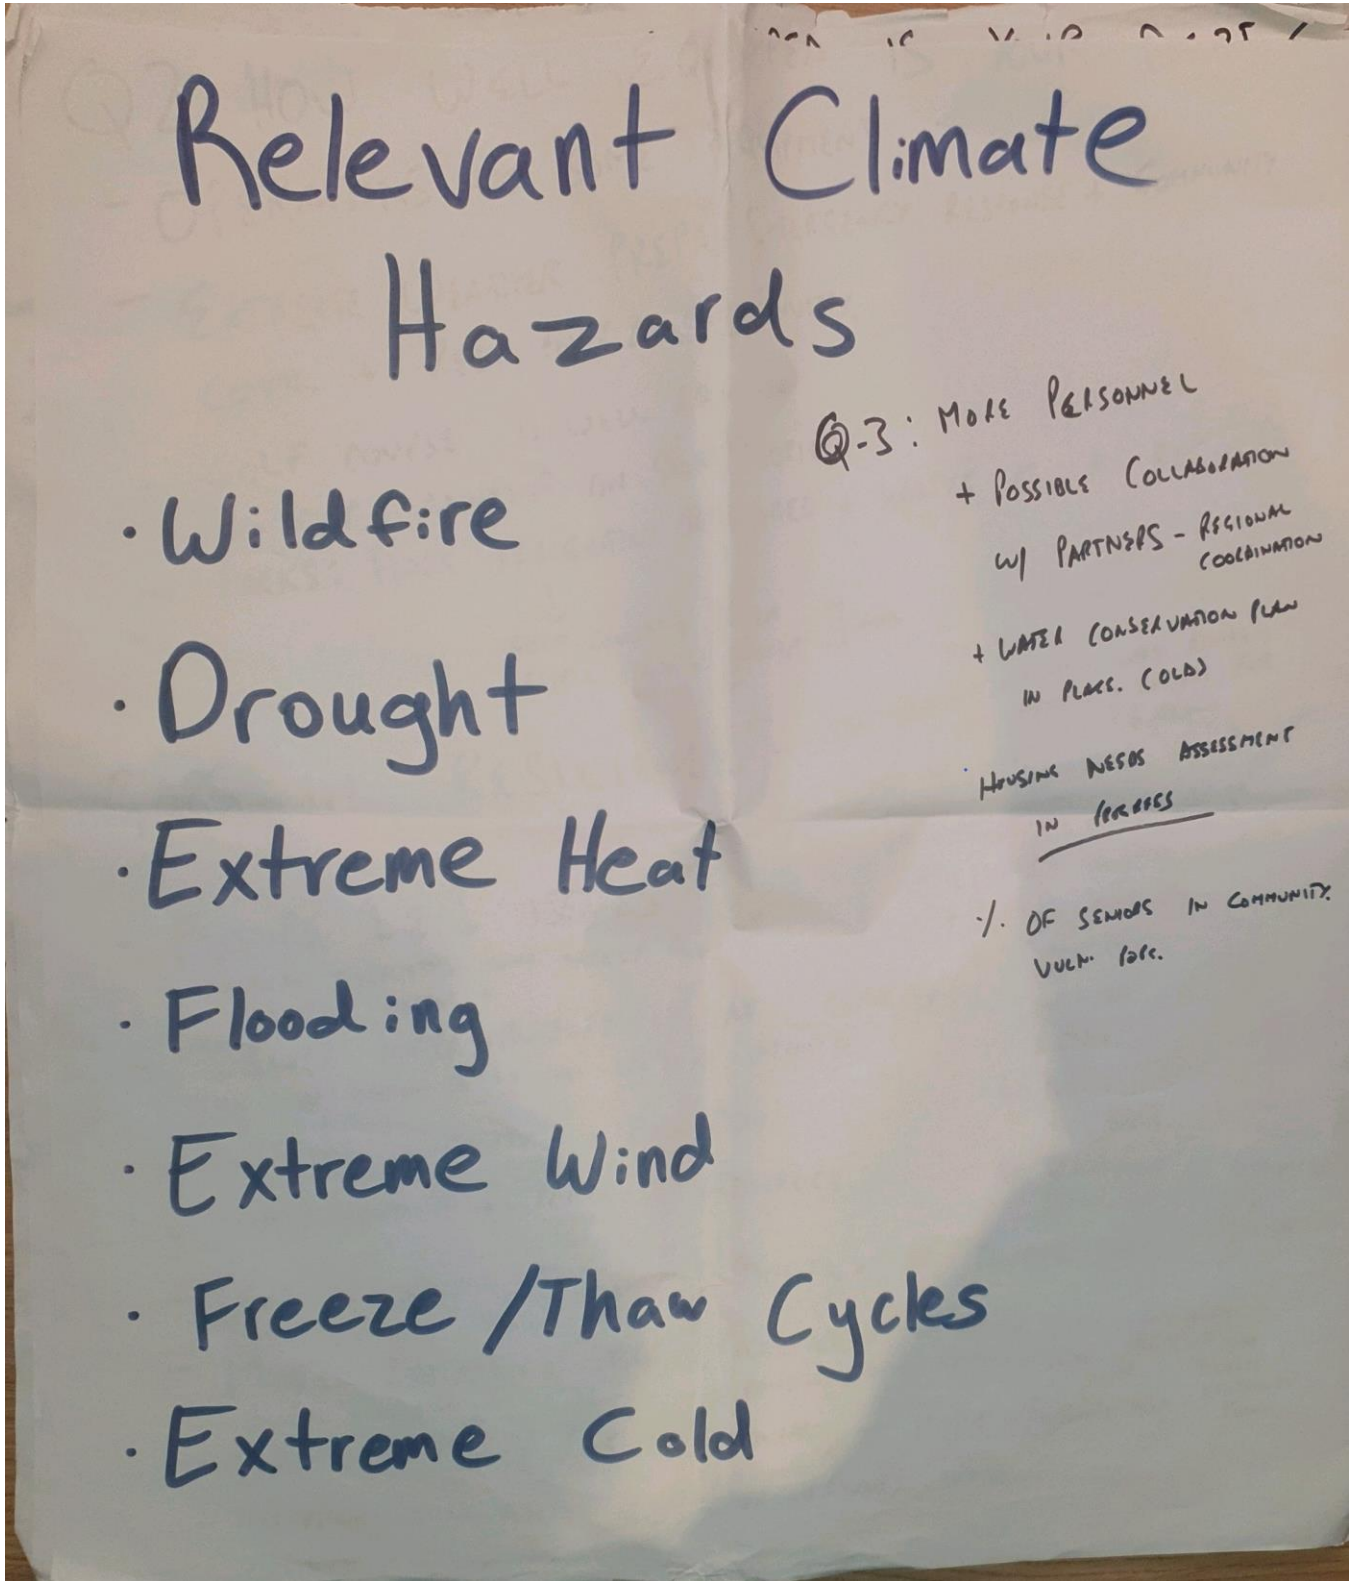 Relevant Climate
Hazards
· Wildfire
· Drought
· Extreme Heat
· Flooding
· Extreme Wind
· Freeze/Thaw Cycles
· Extreme Cold
Q-3: MORE PERSONNEL
+ POSSIBLE COLLABORATION
W/ PARTNERS - REGIONAL
COORDINATION
+ WATER CONSERVATION PLAN
IN PLACE. (OLD)
· HOUSING NEEDS ASSESSMENT
IN PROGRESS
% OF SENIORS IN COMMUNITY.
VULN. POPS.